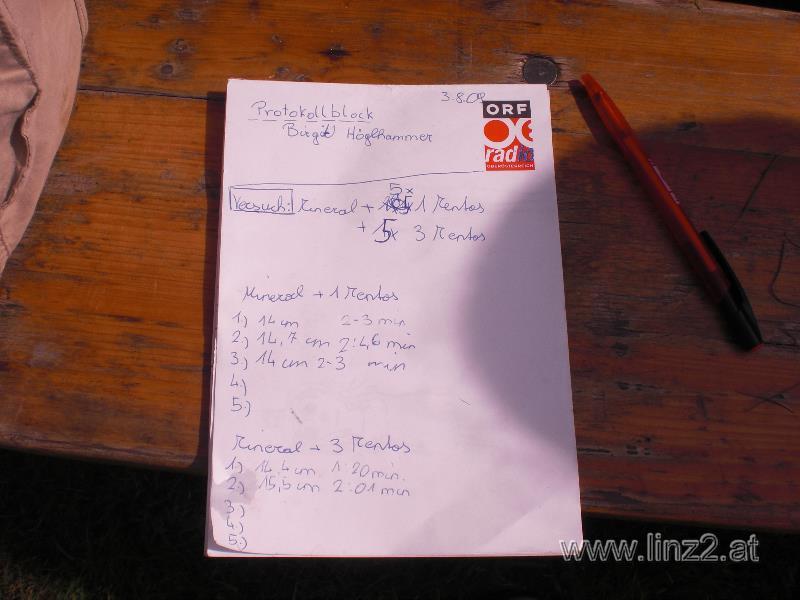 3.8.09
ORF
radio
OBERÖSTERREICH
Protokollblock
Birgit Höglhammer
Versuch: Mineral + 5x 1 Mentos
+ 5x 3 Mentos
Mineral + 1 Mentos
1.) 14 cm 2-3 min
2.) 14,7 cm 2:46 min
3.) 14 cm 2-3 min
4.)
5.)
Mineral + 3 Mentos
1.) 14,4 cm 1:20 min.
2.) 15,5 cm 2:01 min
3.)
4.)
5.)
www.linz2.at